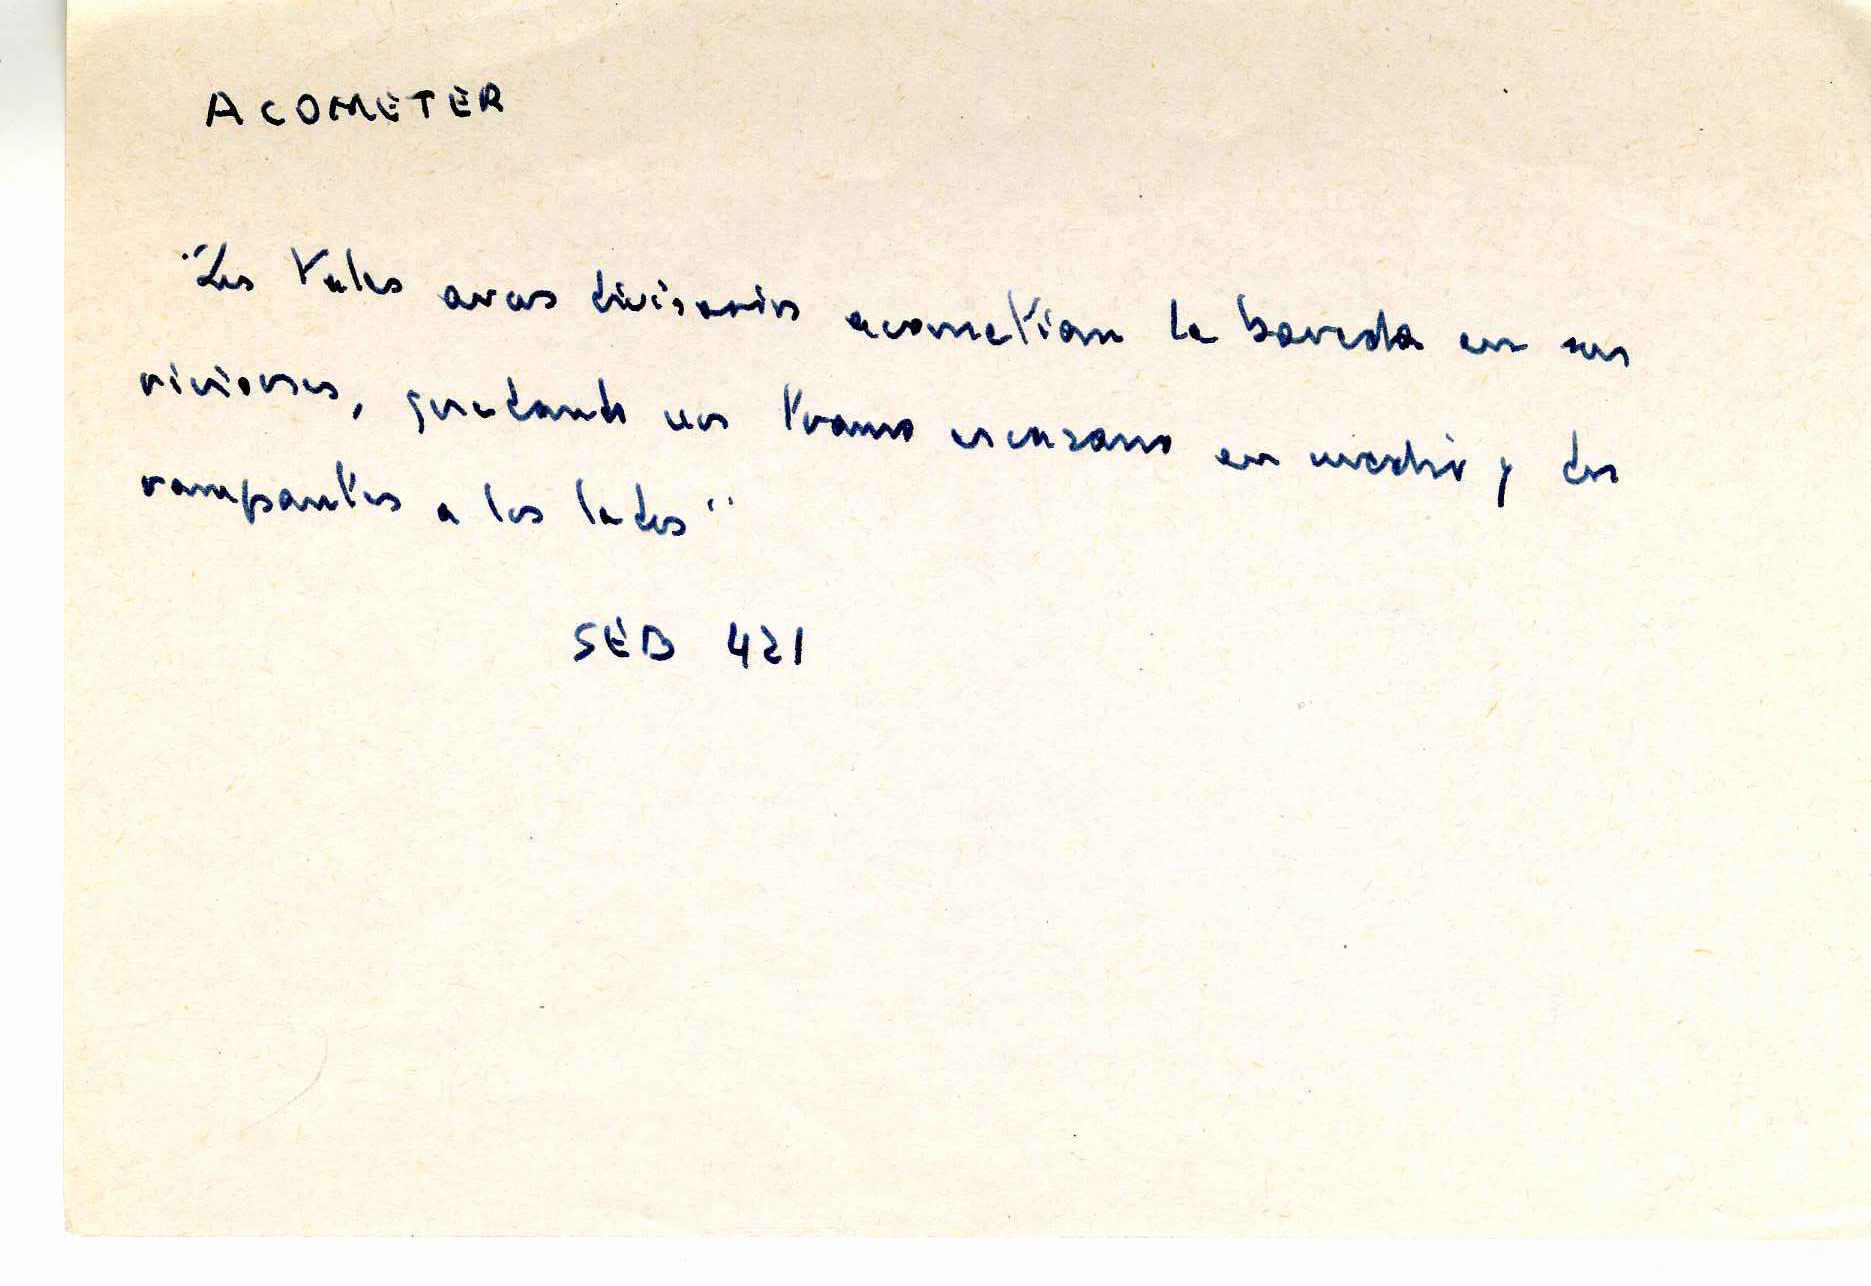 ACOMETER
"Los tales arcos divisorios acometian la boveda en sus
riñones, quedando un tramo escarzano en medio y dos
rampantes a los lados"
SEB 421